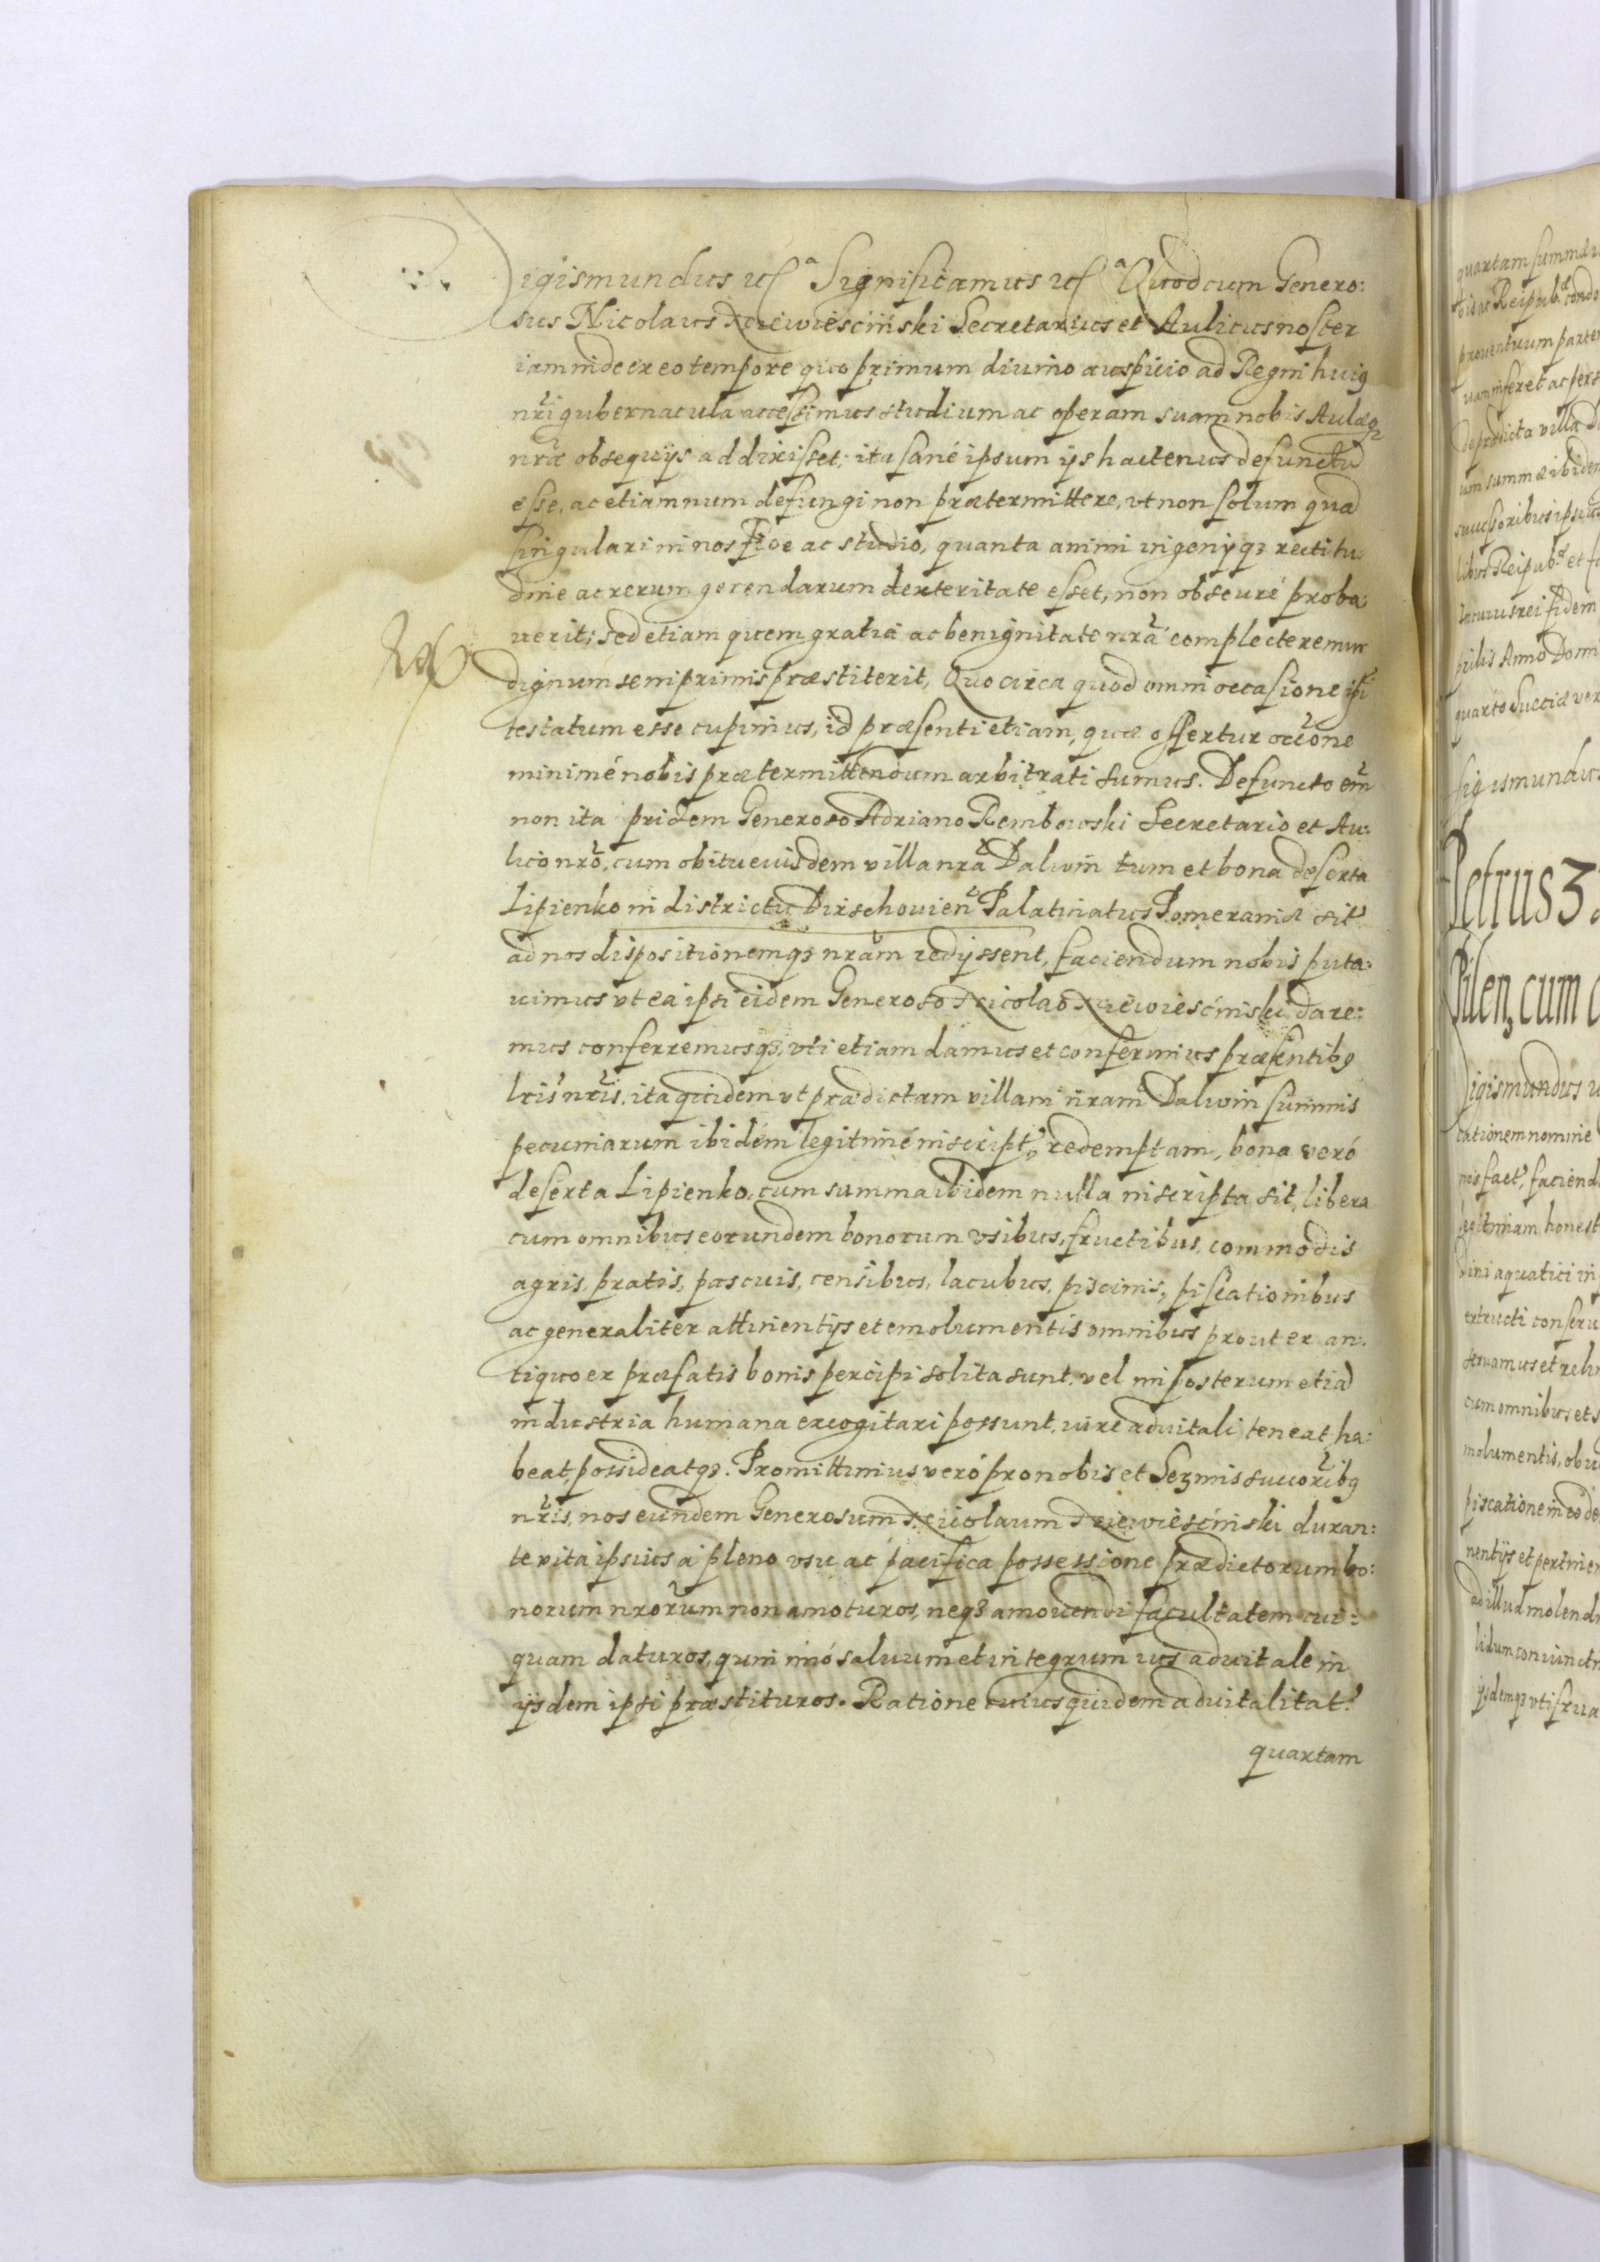 Sigismundus etc.ᵃ Significamus etc.ᵃ Quod cum Genero:
sus Nicolaus Niewiesciński Secretarius et Aulicus noster
iam inde ex eo tempore quo primum diuino auspicio ad Regni huiꝰ
nr̃i gubernacula accessimus studium ac operam suam nobis Aulæqꝫ
nr̃æ obsequijs addixisset; ita sané ipsum ijs hactenus defunctũ
esse, ac etiamnum defungi non prætermittere, vt non solum quã
singulari in nos fide ac studio, quanta animi ingenijqꝫ rectitu:
dine ac rerum gerendarum dexteritate esset, non obscuré proba:
uerit; sed etiam quem gratia ac benignitate nr̃a complecteremur
dignum se inprimis præstiterit, Quocirca quod omni occasione ipi
testatum esse cupimus, id præsenti etiam, quæ offertur occõne
minimé nobis prætermittendum arbitrati sumus. Defuncto em̃
non ita pridem Generoso Adriano Rembowski Secretario et Au:
lico nr̃o, cum obitu euisdem villa nr̃a Dalwin tum et bona deserta
Lipienko in districtu Dirschouien̄ Palatinatus Pomeraniæ sit.
ad nos dispositionemqꝫ nr̃am redijssent, faciendum nobis puta:
uimus vt ea ipsi eidem Generoso Nicolao Niewiesciński dare:
mus conferremusqꝫ, vti etiam damus et conferimus præsentibꝰ
lr̃is nr̃is. ita quidem vt prædictam villam nr̃am Dalwin summis
pecuniarum ibidem legitimé inscript. redemptam, bona veró
deserta Lipienko, cum summa ibidem nulla inscripta sit, libera
cum omnibus eorundem bonorum vsibus, fructibus, commodis
agris, pratis, pascuis, censibus, lacubus, piscinis, piscationibus
ac generaliter attinentijs et emolumentis omnibus prout ex an:
tiquo ex præfatis bonis percipi solita sunt. vel in posterum etiã
industria humana excogitari possunt, iure aduitali teneat, ha:
beat, possideatqꝫ. Promittimus veró pro nobis et Serꝫmis succõribꝰ
nr̃is, nos eundem Generosum Nicolaum Niewiesciński duran:
te vita ipsius á pleno vsu ac pacifica possessione prædictorum bo:
norum nr̃orum non amoturos, neqꝫ amouendi facultatem cui:
quam daturos, quin imó saluum et integrum ius aduitale in
ijsdem ipsi præstituros. Ratione cuius quidem aduitalitat.
quartam
Petrus
Pilen, cum
Sigismundus